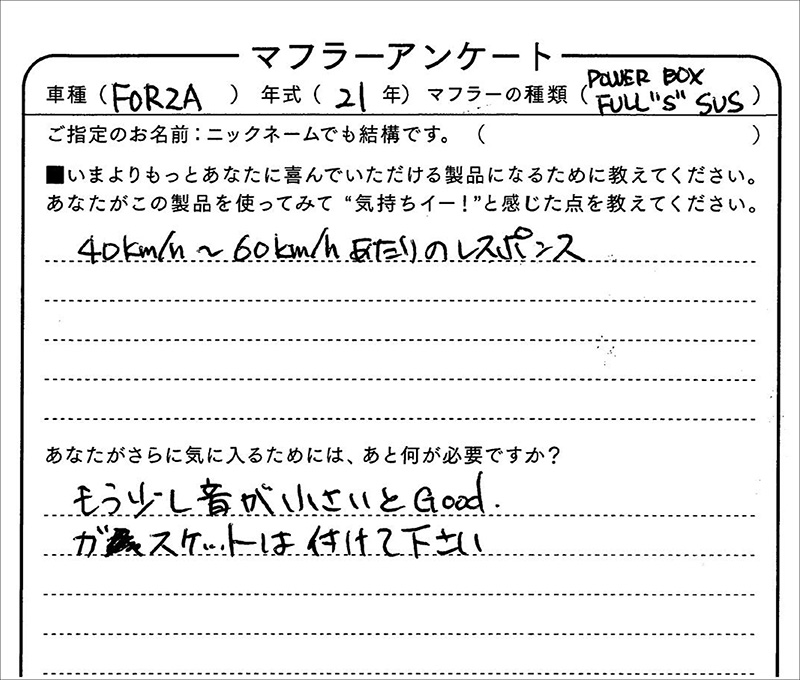 マフラーアンケート
車種（FORZA） 年式（21年） マフラーの種類（POWER BOX FULL"S" SUS）
ご指定のお名前：ニックネームでも結構です。（ ）
■いまよりもっとあなたに喜んでいただける製品になるために教えてください。
あなたがこの製品を使ってみて “気持ちイー！”と感じた点を教えてください。
40km/h～60km/hあたりのレスポンス
あなたがさらに気に入るためには、あと何が必要ですか？
もう少し音が小さいとGood.
ガスケットは付けて下さい